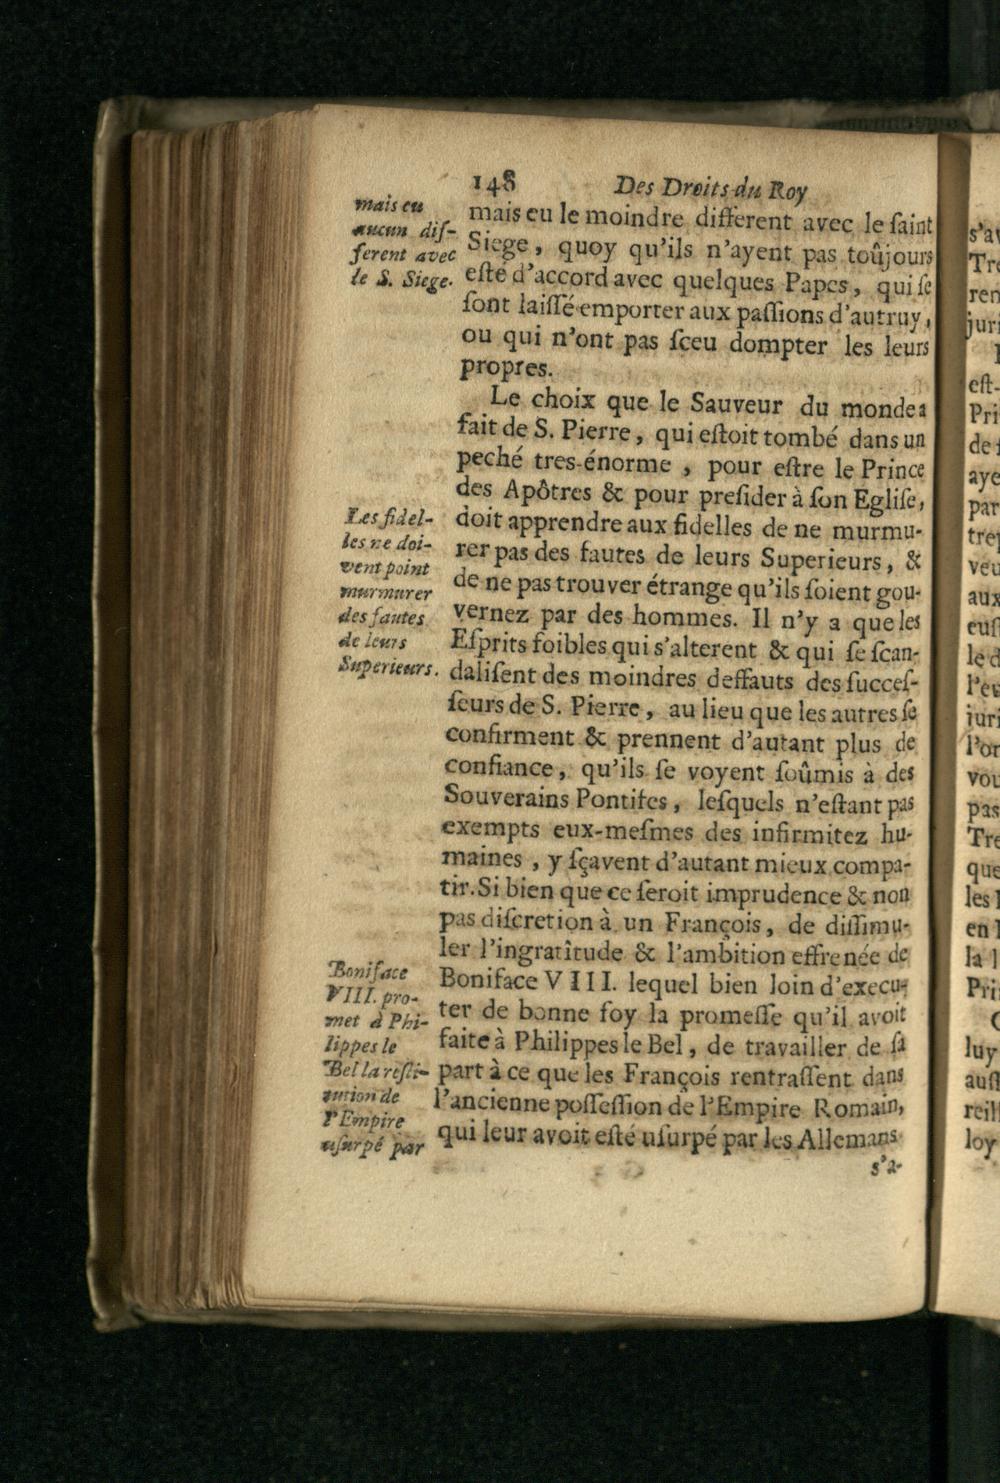 148 Des Droits du Roy
mais eu
aucun dif-
ferent avec
le S. Siege.
mais eu le moindre different avec le ſaint
Siege, quoy qu'ils n'ayent pas toûjours
eſté d'accord avec quelques Papes, qui ſe
ſont laiſſé emporter aux paſſions d'autruy,
ou qui n'ont pas ſceu dompter les leurs
propres.
Le choix que le Sauveur du monde a
fait de S. Pierre, qui eſtoit tombé dans un
peché tres-énorme, pour eſtre le Prince
des Apôtres & pour preſider à ſon Egliſe,
doit apprendre aux fidelles de ne murmu-
rer pas des fautes de leurs Superieurs, &
de ne pas trouver étrange qu'ils ſoient gou-
vernez par des hommes. Il n'y a que les
Eſprits foibles qui s'alterent & qui ſe ſcan-
daliſent des moindres deffauts des ſucceſ-
ſeurs de S. Pierre, au lieu que les autres ſe
confirment & prennent d'autant plus de
confiance, qu'ils ſe voyent ſoûmis à des
Souverains Pontifes, leſquels n'eſtant pas
exempts eux-meſmes des infirmitez hu-
maines, y ſçavent d'autant mieux compa-
tir. Si bien que ce ſeroit imprudence & non
pas diſcretion à un François, de diſſimu-
ler l'ingratitude & l'ambition effrenée de
Boniface VIII. lequel bien loin d'execu-
ter de bonne foy la promeſſe qu'il avoit
faite à Philippes le Bel, de travailler de ſa
part à ce que les François rentraſſent dans
l'ancienne poſſeſſion de l'Empire Romain,
qui leur avoit eſté uſurpé par les Allemans
s'a-
Les fidel-
les ne doi-
vent point
murmurer
des fautes
de leurs
Superieurs.
Boniface
VIII. pro-
met à Phi-
lippes le
Bel la reſti-
tution de
l'Empire
uſurpé par